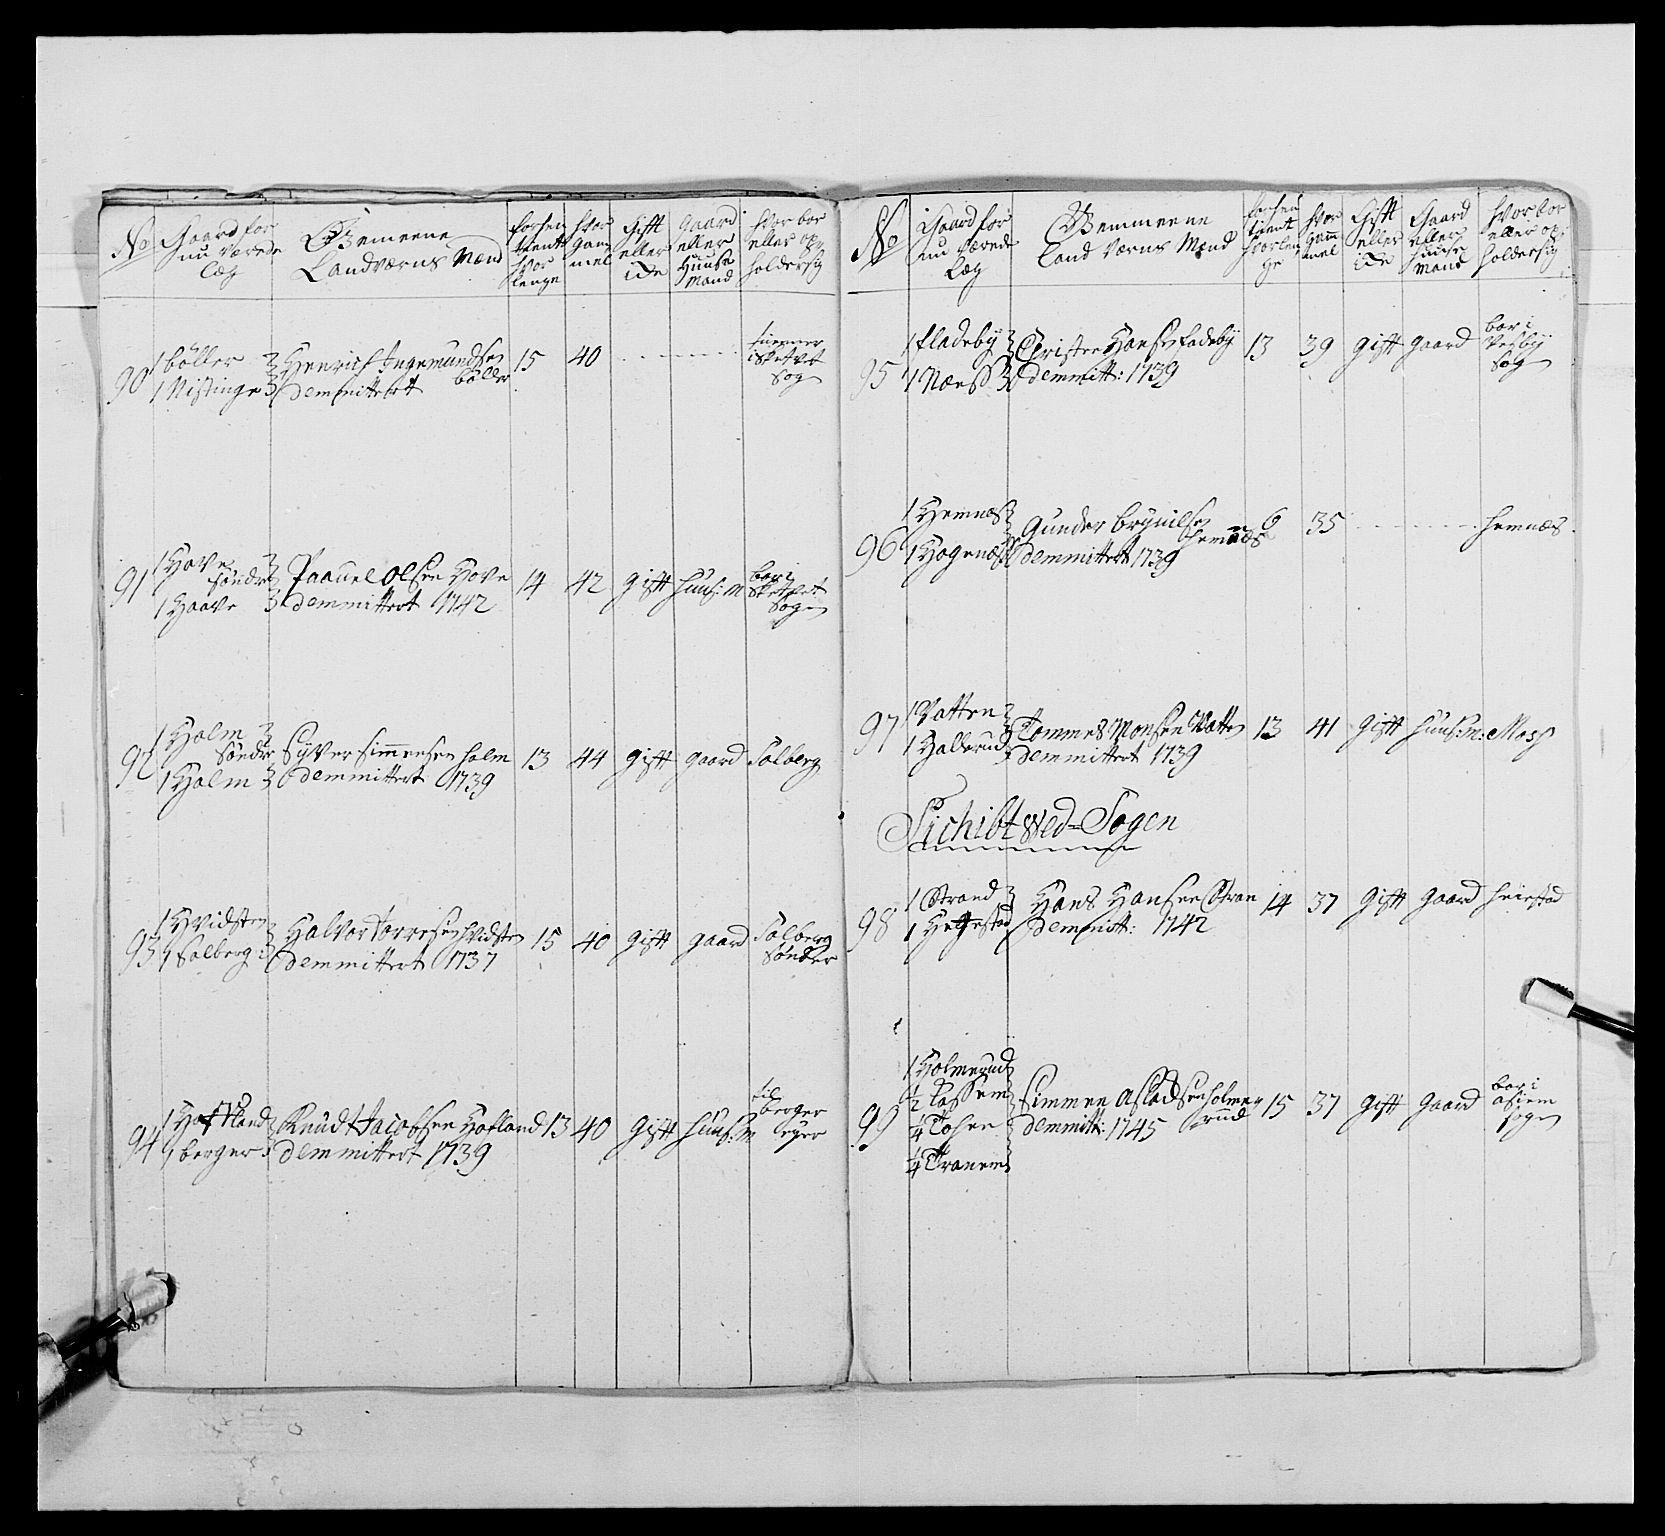 No
Gaard for
nu Værede
Læg
Gemeene
Landværns Mænd
forhen
tient
hvor
lenge
hvor
gam
mel
Gift
eller
ide
gaard
eller
Huuse
Mand
hvor boer
eller op
holdersig
90
1 böller
1 Nistinge
Henrich Ingemundsen
böller
demmittert
15
40
tienner
i
Sogn
91
1 Hove
söndre
1 Haave
Paauel Olsen Hove
demmittert 1742
14
42
gift
huus: M
bor i
Sogen
92
1 Holm
Söndre
1 Holm
Syver Simmensen holm
demmittert 1739
13
44
gift
gaard
Solberg
93
1 Hvidsten
1 Solberg
Halvor Torresen hvidsten
demmittert 1737
15
40
gift
gaard
Solberg
Sönder
94
1 Hafland
1 berger
Knudt Jacobsen Hafland
demmittert 1739
13
40
gift
huus: M
til
berger
eyer
No
Gaard for
nu Værede
Læg
Gemmeene
Land Værns Mænd
forhen
tient
hvorlen
ge
hvor
gam
mel
Gift
eller
ide
Gaard
eller
huuse
Mand
hvor bor
eller op
holdersig
95
1 fladeby
1 Næns
Christen Hansen fladeby
demmitt: 1739
13
39
gift
gaard
bor i
Vesby
Sog
96
1 Hemnæs
1 Hogenæs
Gunder brynilsen
hemnæs
demmittert 1739
6
35
hemnæs
97
1 Vatten
1 Hallerud
Tommes Monsen Vatten
demmittert 1739
13
41
gift
huus: m:
Moss
Sichibtwed=Sogen
98
1 Strand
1 Hegestad
Hans Hansen Stran
demmitt: 1742
14
37
gift
gaard
heiestad
99
1 Holmerud
1/2 Tassem
1/4 Tosen
1/4 Tranem
Simmen Asladsen holme
rud
demmitt: 1745
15
37
gift
gaard
bor i
asiem
sogen